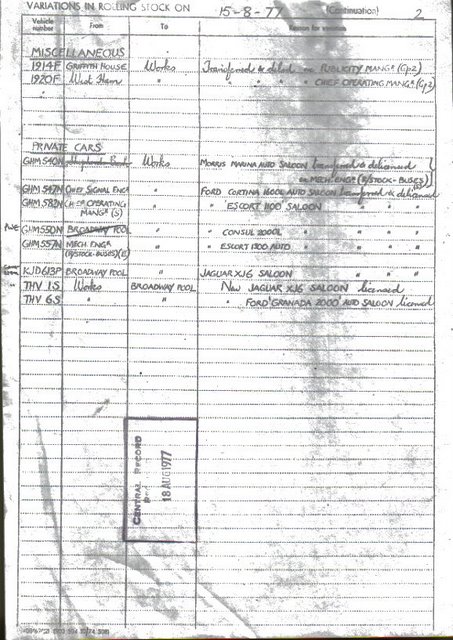 VARIATIONS IN ROLLING STOCK ON 15-8-77 (Continuation) 2
Vehicle number From To Reason for variation
MISCELLANEOUS
1914F GRIFFITH HOUSE Works Transferred & delicd PUBLICITY MANGR (Gp2)
1920F West Ham " " " " " CHIEF OPERATING MANGR (Gp2)
PRIVATE CARS
GHM 540N Works MORRIS MARINA AUTO SALOON transferred & delicensed
MECH ENGR (R/STOCK-BUSES)
GHM 547N CHIEF SIGNAL ENGR " FORD CORTINA 1600L AUTO SALOON transferred & delicensed
GHM 582N CHIEF OPERATING MANGR (S) " " 'ESCORT 1100' SALOON " " "
GHM 550N BROADWAY POOL " " CONSUL 2000L " " "
GHM 557N MECH. ENGR (R/STOCK-BUSES)(E) " " ESCORT 1300 AUTO " " "
KJD 613P BROADWAY POOL " JAGUAR XJ6 SALOON " " "
THV 1S Works BROADWAY POOL New JAGUAR XJ6 SALOON licensed
THV 6S " " " FORD 'GRANADA 2000' AUTO SALOON licensed
CENTRAL RECORD
18 AUG 1977